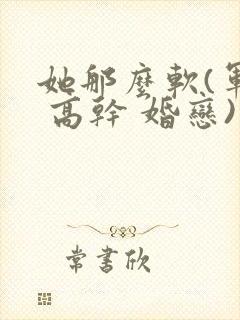 她那麼軟(軍
高幹 婚戀)
常書欣